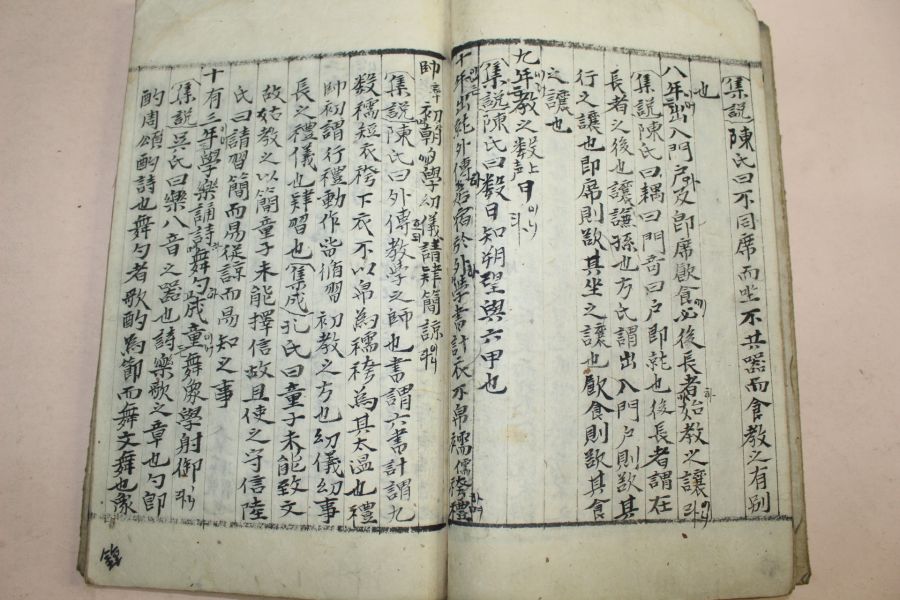 集說陳氏曰不同席而坐不共器而食教之有別
也
八年出入門戶及即席飲食必後長者始教之讓
集說陳氏曰耦曰門奇曰戶即就也後長者謂在
長者之後也讓謙孫也方氏謂出入門戶則欲其
行之讓也即席則欲其坐之讓也飲食則欲其食
之讓也
九年教之數上声日
集說陳氏曰數日知朔望與六甲也
十年出就外傅居宿於外學書計衣不帛襦袴禮
帥初朝夕學幼儀請肄簡諒
集說陳氏曰外傅教學之師也書謂六書計謂九
數襦短衣袴下衣不以帛為襦袴為其太溫也禮
帥初謂行禮動作皆循習初教之方也幼儀事
長之禮儀也肄習也集成孔氏曰童子未能致文
故姑教之以簡童子未能擇信故且使之守信陸
氏曰請習簡而易從諒而易知之事
十有三年學樂誦詩舞勺成童舞象學射御
集說吳氏曰樂八音之器也詩樂歌之章也勺即
酌周頌酌詩也舞勺者歌酌為節而舞文舞也象